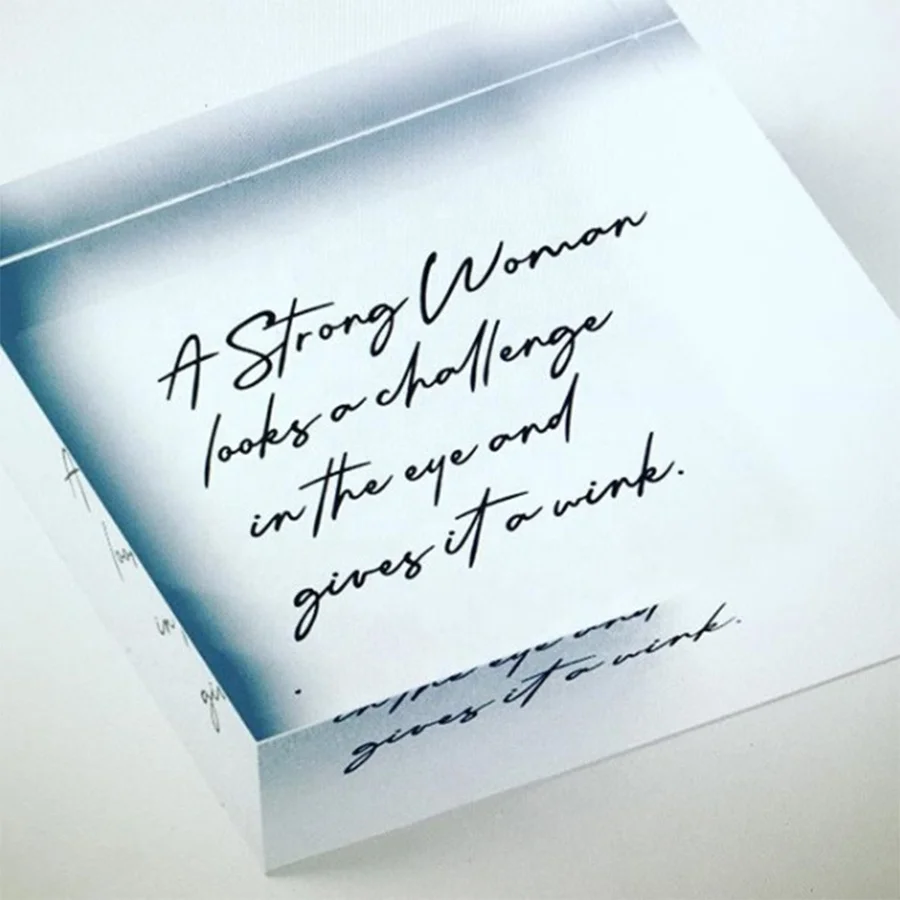 A Strong Woman
looks a challenge
in the eye and
gives it a wink.